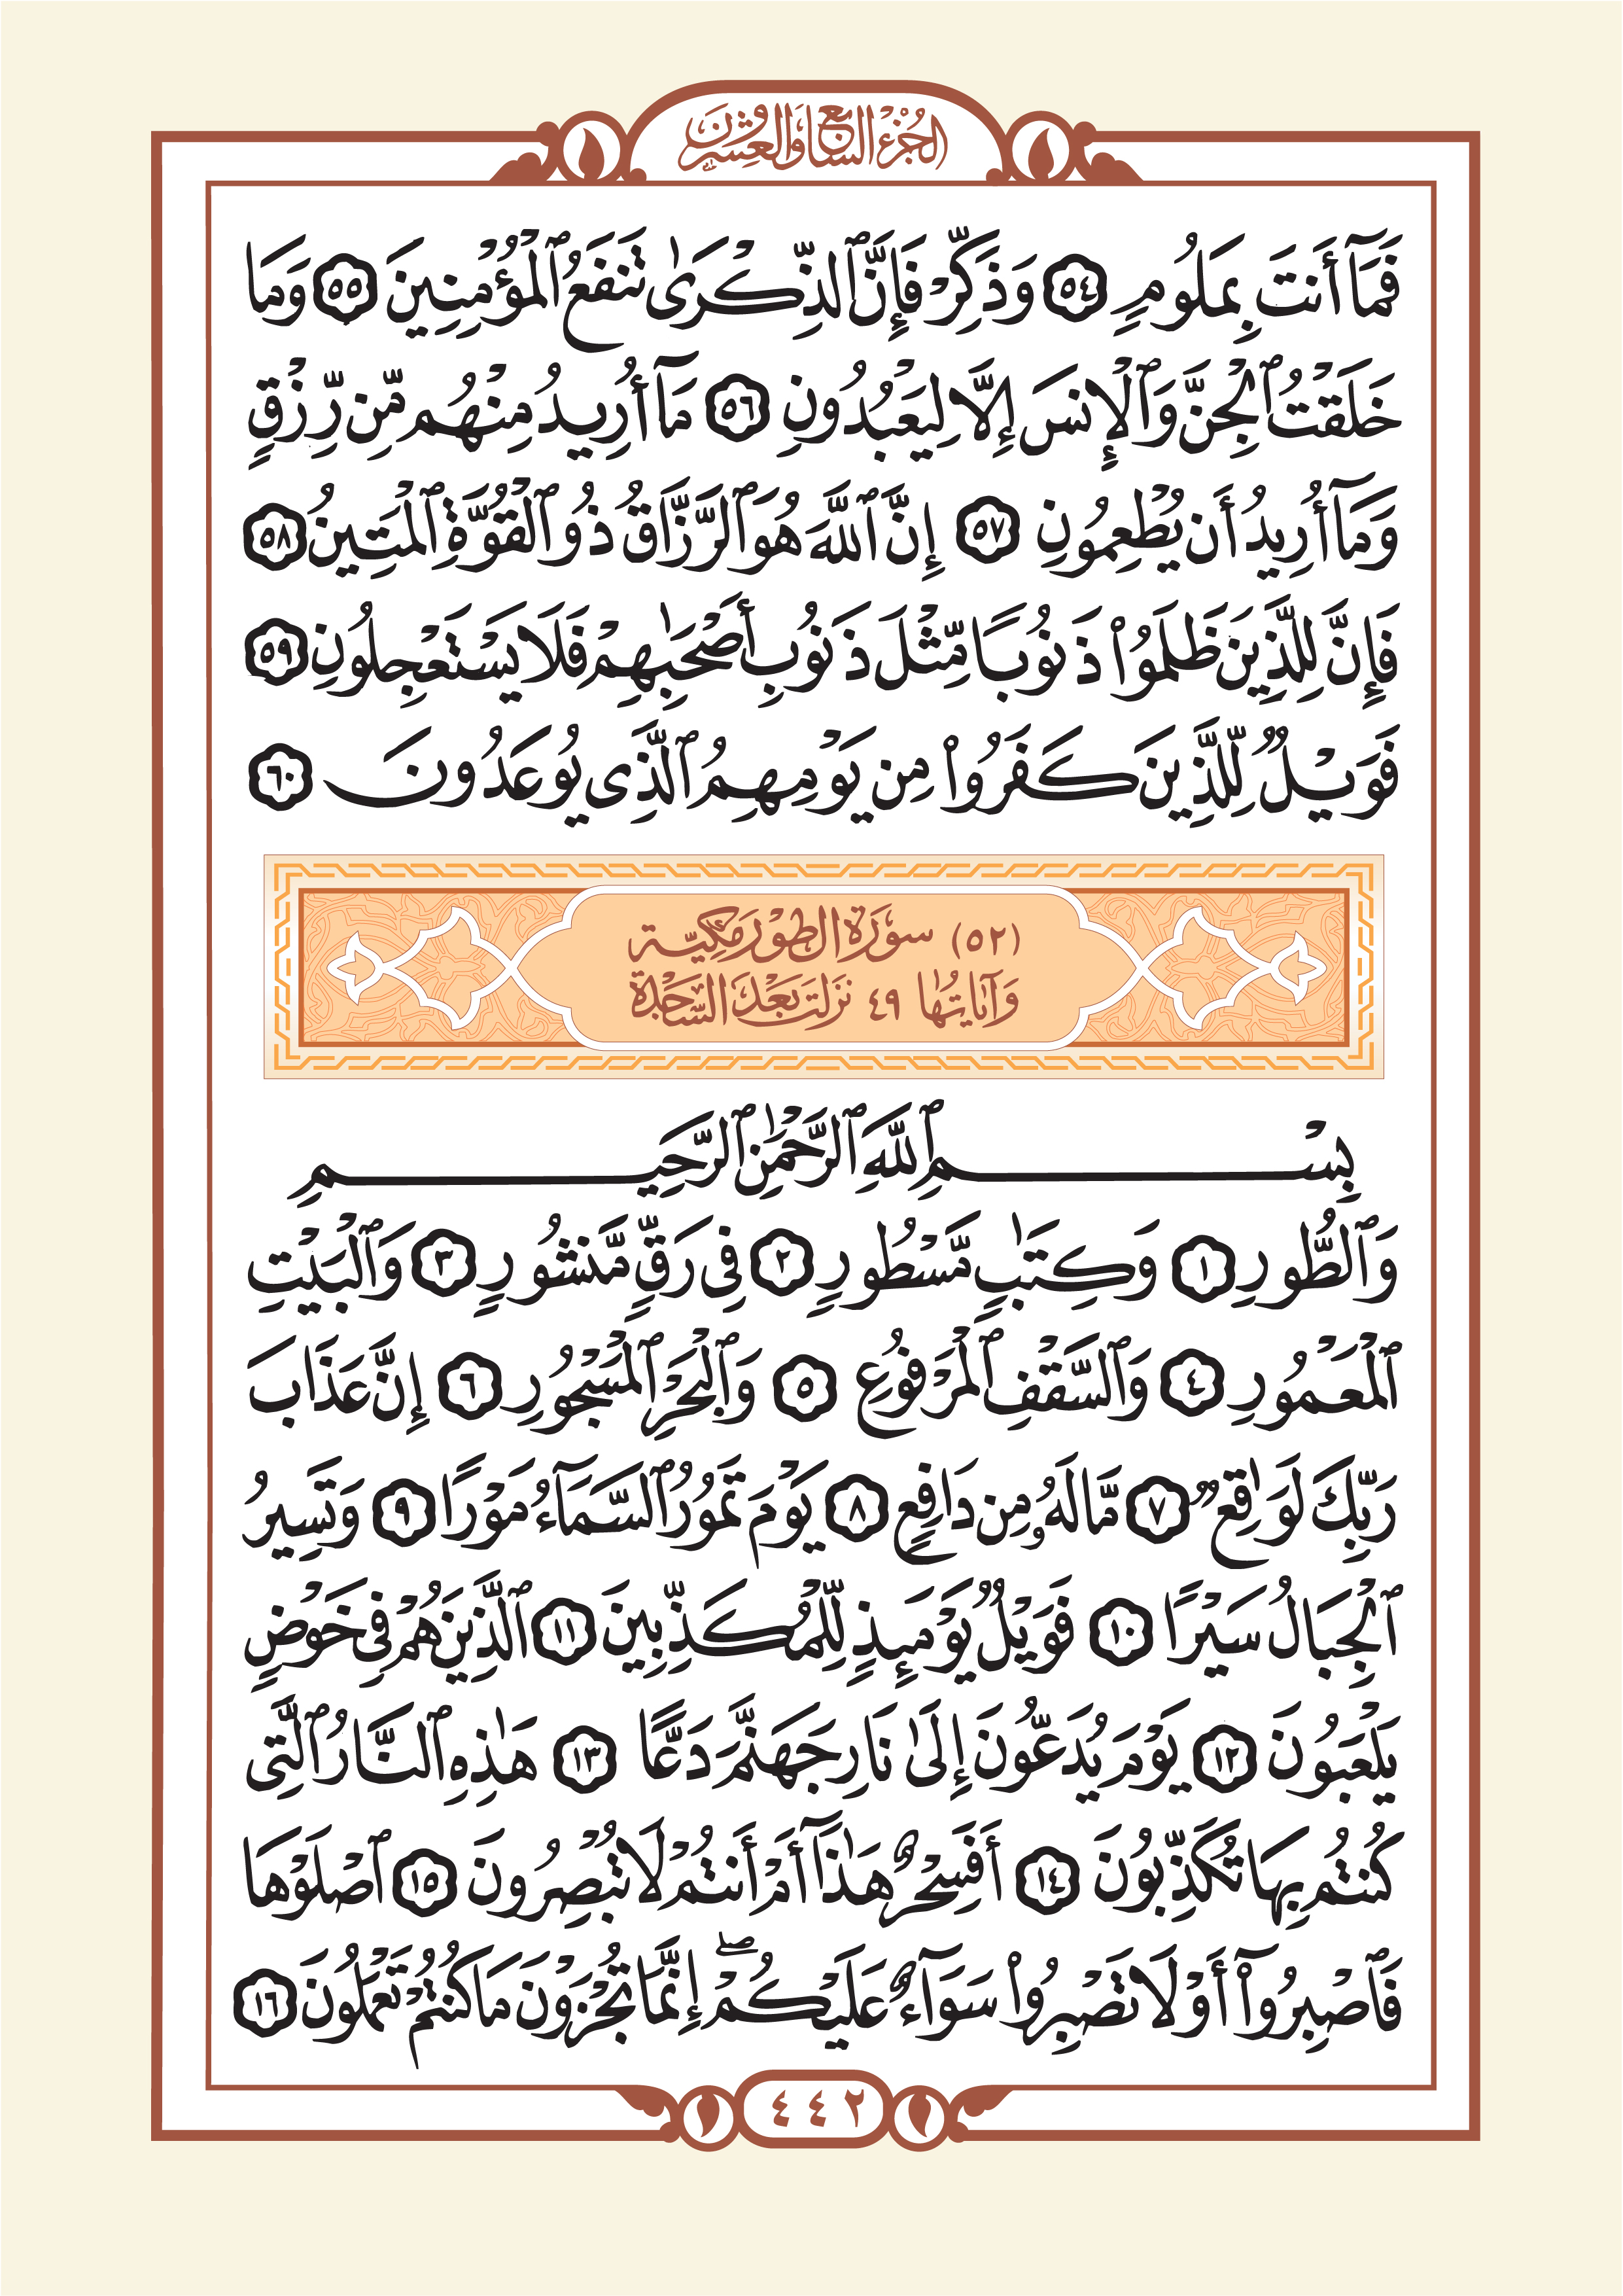 الجزء السابع والعشرون
فَمَآ أَنتَ بِمَلُومٍ ٥٤ وَذَكِّرْ فَإِنَّ ٱلذِّكْرَىٰ تَنفَعُ ٱلْمُؤْمِنِينَ ٥٥ وَمَا
خَلَقْتُ ٱلْجِنَّ وَٱلْإِنسَ إِلَّا لِيَعْبُدُونِ ٥٦ مَآ أُرِيدُ مِنْهُم مِّن رِّزْقٍ
وَمَآ أُرِيدُ أَن يُطْعِمُونِ ٥٧ إِنَّ ٱللَّهَ هُوَ ٱلرَّزَّاقُ ذُو ٱلْقُوَّةِ ٱلْمَتِينُ ٥٨
فَإِنَّ لِلَّذِينَ ظَلَمُوا۟ ذَنُوبًا مِّثْلَ ذَنُوبِ أَصْحَٰبِهِمْ فَلَا يَسْتَعْجِلُونِ ٥٩
فَوَيْلٌ لِّلَّذِينَ كَفَرُوا۟ مِن يَوْمِهِمُ ٱلَّذِى يُوعَدُونَ ٦٠
(٥٢) سورة الطور مكية
وآياتها ٤٩ نزلت بعد السجدة
بِسْمِ ٱللَّهِ ٱلرَّحْمَٰنِ ٱلرَّحِيمِ
وَٱلطُّورِ ١ وَكِتَٰبٍ مَّسْطُورٍ ٢ فِى رَقٍّ مَّنشُورٍ ٣ وَٱلْبَيْتِ
ٱلْمَعْمُورِ ٤ وَٱلسَّقْفِ ٱلْمَرْفُوعِ ٥ وَٱلْبَحْرِ ٱلْمَسْجُورِ ٦ إِنَّ عَذَابَ
رَبِّكَ لَوَٰقِعٌ ٧ مَّا لَهُۥ مِن دَافِعٍ ٨ يَوْمَ تَمُورُ ٱلسَّمَآءُ مَوْرًا ٩ وَتَسِيرُ
ٱلْجِبَالُ سَيْرًا ١٠ فَوَيْلٌ يَوْمَئِذٍ لِّلْمُكَذِّبِينَ ١١ ٱلَّذِينَ هُمْ فِى خَوْضٍ
يَلْعَبُونَ ١٢ يَوْمَ يُدَعُّونَ إِلَىٰ نَارِ جَهَنَّمَ دَعًّا ١٣ هَٰذِهِ ٱلنَّارُ ٱلَّتِى
كُنتُم بِهَا تُكَذِّبُونَ ١٤ أَفَسِحْرٌ هَٰذَآ أَمْ أَنتُمْ لَا تُبْصِرُونَ ١٥ ٱصْلَوْهَا
فَٱصْبِرُوٓا۟ أَوْ لَا تَصْبِرُوا۟ سَوَآءٌ عَلَيْكُمْ ۖ إِنَّمَا تُجْزَوْنَ مَا كُنتُمْ تَعْمَلُونَ ١٦
٤٤٢